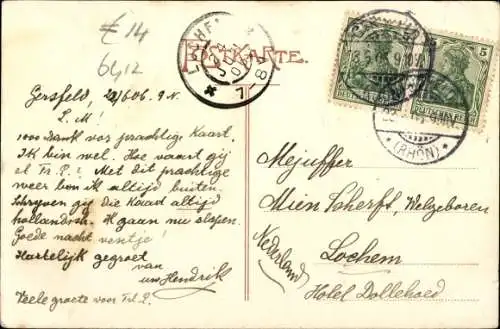 € 14
6412
POSTKARTE.
LOCHEM
* 7 8
GERSFELD
* (RHÖN) *
5
Gersfeld, 22/6 06. 9 N.
L. M!
1000 Dank vor prachtige Kaart.
Ik bin wel. Hoe vaart gij
el Frl. P.! Met dit prachtige
weer ben ik altijd buiten.
Schryven gij die Kaart altijd
hollandsch. Ik gaan nu slapen.
Goede nacht ventje!
Hartelijk gegroet
van
uw Hendrik
Veele groete voor Frl. P.
Mejuffer
Mien Scherft, Welgeboren
Lochem
Nederland
Hotel Dollehoed